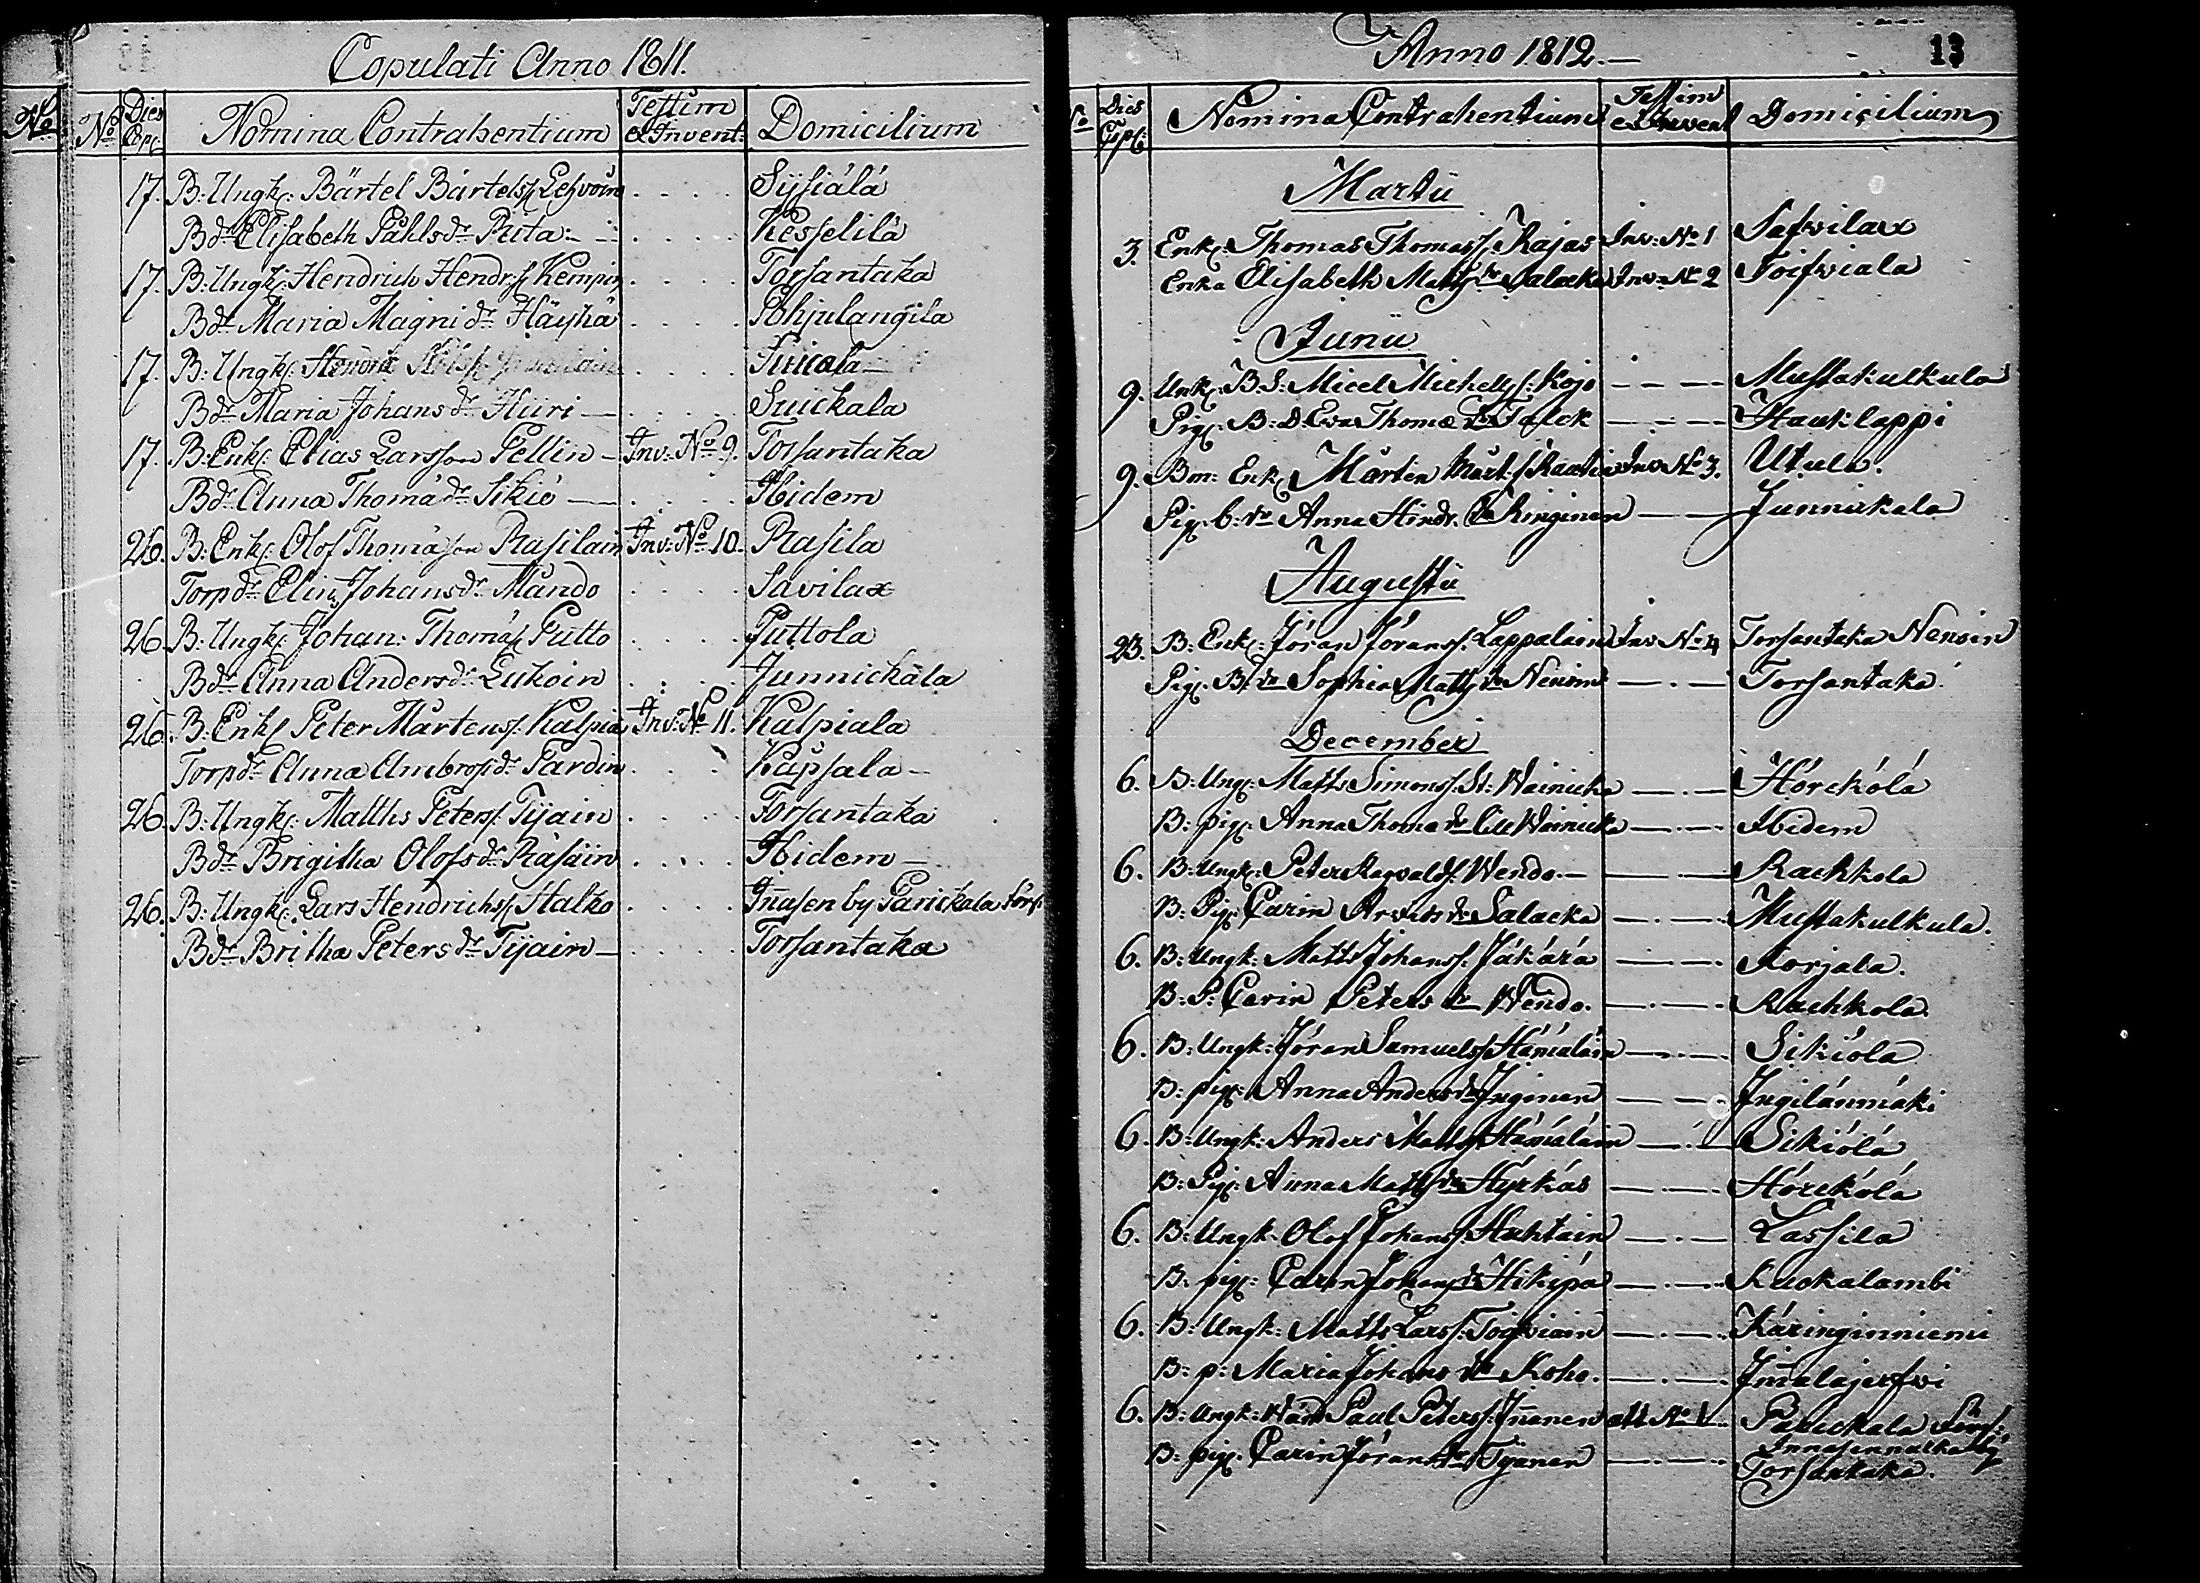 Copulati Anno 1811.
No No Dies Cop: Nomina Contrahentium Testim & Invent: Domicilium
17. B: Ungk: Bärtel Bärtelsſ Lehvoin Syſiälä
Bdr Elisabeth Påhlsdr Rita Kesſelilä
17. B: Ungk: Hendrich Hendrſ Kempin Torsantaka
Bdr Maria Magni dr Häyhä Pohjulangila
17. B: Ungk:
Bdr Maria Johans dr Hiiri Suickala
17. B: Enk: Elias Larsson Pellin Inv: No 9. Torsantaka
Bdr Anna Thomä dr Sikiö Ibidem
26. B: Enk: Olof Thomäson Rasilain Inv: No 10. Rasila
Torpdr Elin Johansdr Mändo Savilax
26 B: Ungk: Johan: Thomäſ Putto Puttola
Bdr Anna Andersdr Lukoin Junnickäla
26 B: Enk: Peter Mårtensſ: Kalpia Inv: No 11. Kalpiala
Torpdr Anna Ambrosdr Pardin Kapsala
26 B: Ungk: Matths Petersſ: Tijain Torsantaka
Bdr Brigitha Olofsdr Räsäin Ibidem
26. B: Ungk: Lars Hendrichsſ Halko Inasen by Parickala Förs:
Bdr Britha Peters dr Tijain Torsantaka
Anno 1812. 13
No Dies Copl: Nomina Contrahentium Testim et Invent Domicilium
Martii
3. Enk: Thomas Thomasſ: Rajas Inv: No 1 Safvilax
Enka Elisabeth Mattsdr Salacka Inv: No 2 Toifwiala
Junii
9. Unk: B. S: Micel Michelsſ: Kojo Mustakulkula
Pig: B: D. Eva Thomæ dr Talck Hauklappi
9. Bon: Enk: Mårten Mårtſ Raatia Inv No 3. Utula.
Pig. b: dr Anna Hindr. dr Ringinen Junnickala
Augusti
23. B: Enk: Jöran Göransſ: Lappalain Inv No 4 Torsantaka Nensin
Pig: B. dr Sophia Matts dr Nensin Torsantaka
December
6. B: Ung: Matts Simonsſ: St: Wainicka Hörckölä
B: pig: Anna Thomæ dr Lill Wainicka Ibidem
6. B: Ungk: Peter Ragvaldſ: Wendo Rachkola
B: Pig: Carin Arvids dr Salacka Mustakulkula.
6. B: Ungk: Matts Johansſ: Jäkärä Korjala.
B: P: Carin Peters dr Wendo. Rachkola
6. B: Ungk: Jöran Samuelsſ: Häniäläin Sikiöla
B: pig: Anna Anders dr Inginen Ingilänmäki
6. B: Ungk: Anders Mattsſ Häniäläin Sikiölä
B: Pig: Anna Matts dr Hyrkäs Hörckölä
6. B: Ungk: Olof Johansſ: Huhtain Lassila
B: pig: Carin Johans dr Hikipä Kuokalambi
6. B: Ungk: Matts Larsſ: Togwiain Käringinniemi
B: p: Maria Johans dr Koho. Immalajerfwi
6. B: Ungk: Paul Petersſ: Innanen att No 1 Parickala Förs:
Innasennalka by
B: pig: Carin Jörans dr Tyänen Torsantaka.